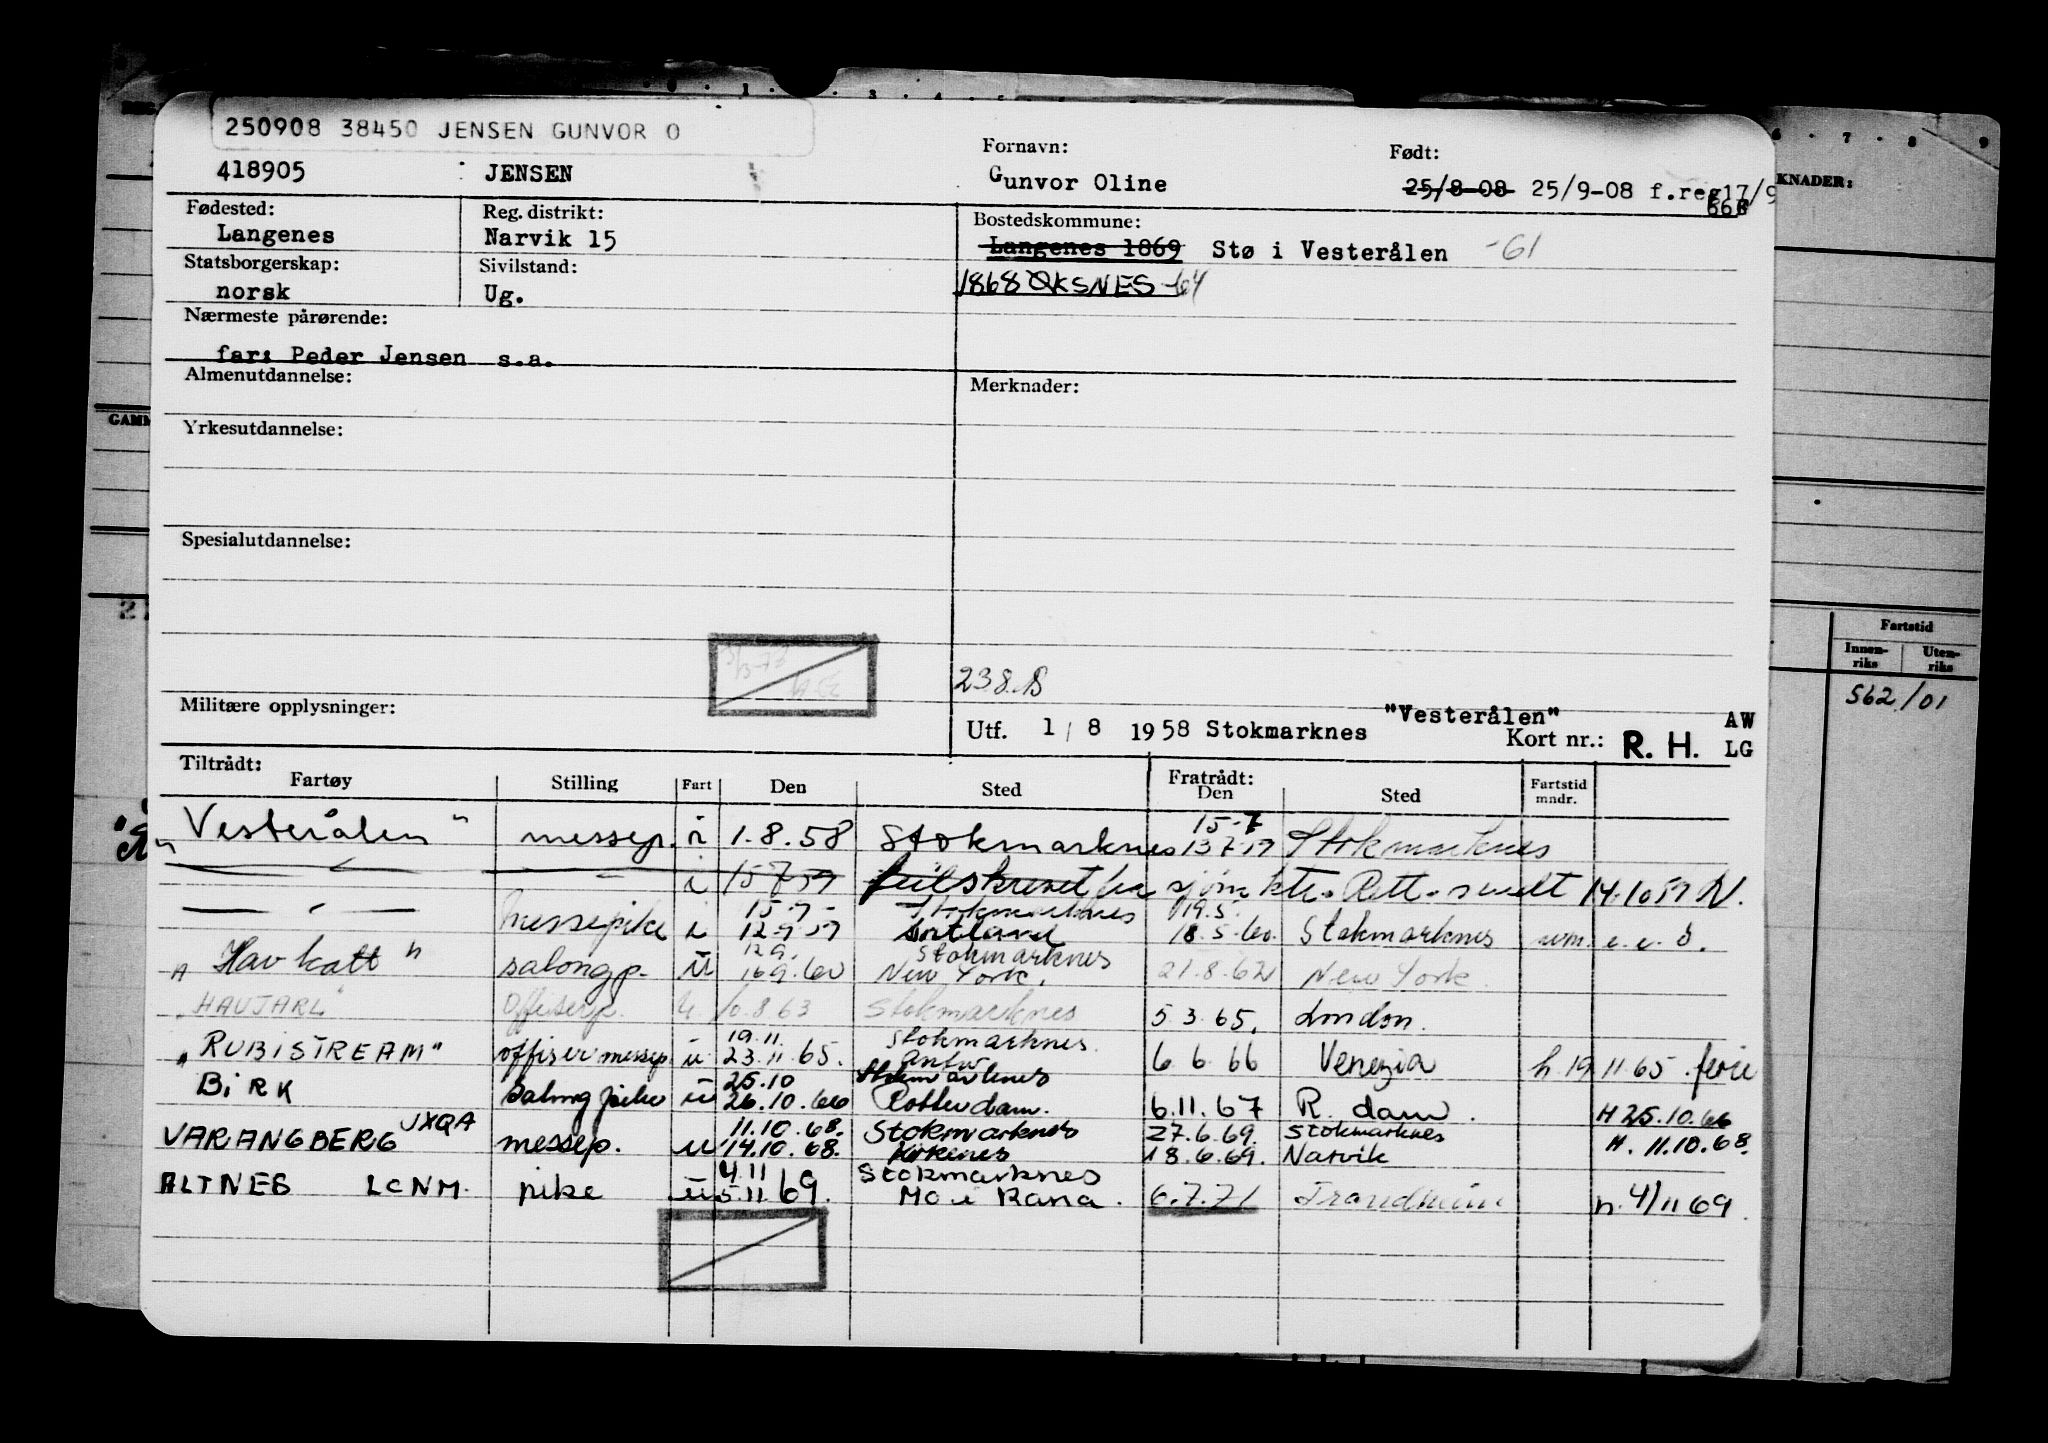 250908 38450 JENSEN GUNVOR O
418905 JENSEN
Fornavn:
Gunvor Oline
Født:
25/8-08 25/9-08 f.reg17/9
66
KNADER:
Fødested:
Langenes
Reg. distrikt:
Narvik 15
Bostedskommune:
Langenes 1869 Stø i Vesterålen -61
1868 ØKSNES -64
Statsborgerskap:
norsk
Sivilstand:
Ug.
Nærmeste pårørende:
far: Peder Jensen s.a.
Almenutdannelse:
Merknader:
Yrkesutdannelse:
Spesialutdannelse:
Militære opplysninger:
Utf. 1/8 1958 Stokmarknes "Vesterålen"
Kort nr.: R. H. AW
LG
Fartstid
Innen-
riks
Uten-
riks
562/01
Tiltrådt:
Fartøy Stilling Fart Den Sted
Fratrådt:
Den Sted
Fartstid
mndr.
"Vesterålen" messep. i 1.8.58 Stokmarknes 15-7 Stokmarknes
— " — i 15 7 59 feilskrevet fra sjøm ktr. Rett. sendt 14.10 59 N.
— " — messepike i 15-7- Stokmarknes 19.5.
12 9 59 Sortland 18.5.60. Stokmarknes
"Havkatt" salongp. u 12 9. Stokmarknes
16 9.60 New York. 21.8.62 New York.
"HAVJARL" offiserp. u. 10.8 63 Stokmarknes 5 3.65. London.
"RUBISTREAM" offisermessep. u. 19.11. Stokmarknes.
23.11.65. Antw 6 6 66 Venezia h. 19 11 65. ferie
BIRK Salongpike u 25.10 Stokmarknes
26.10.66 Rotterdam. 6.11.67 R. dam. H 25.10.66
VARANGBERG JXQA messep. u 11.10.68. Stokmarknes 27.6.69. Stokmarknes
14.10.68. Kirkenes 18.6.69. Narvik H. 11.10.68.
ALTNES LCNM. pike u 4.11 Stokmarknes
5.11 69. Mo i Rana. 6.7.71 Trondheim h. 4/11 69.